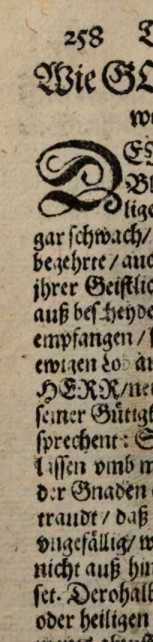 258
Wie GO
DES
Bl
lige
gar schwach/
begehrte / auc
jhrer Geistlic
auß des Heyde
empfangen /
ewigen Tod
HERR/
seiner Gütigk
sprechent: S
lassen vmb m
der Gnaden
traudt / daß
vngefällig/ w
nicht auß hin
set. Derohalb
oder heiligen